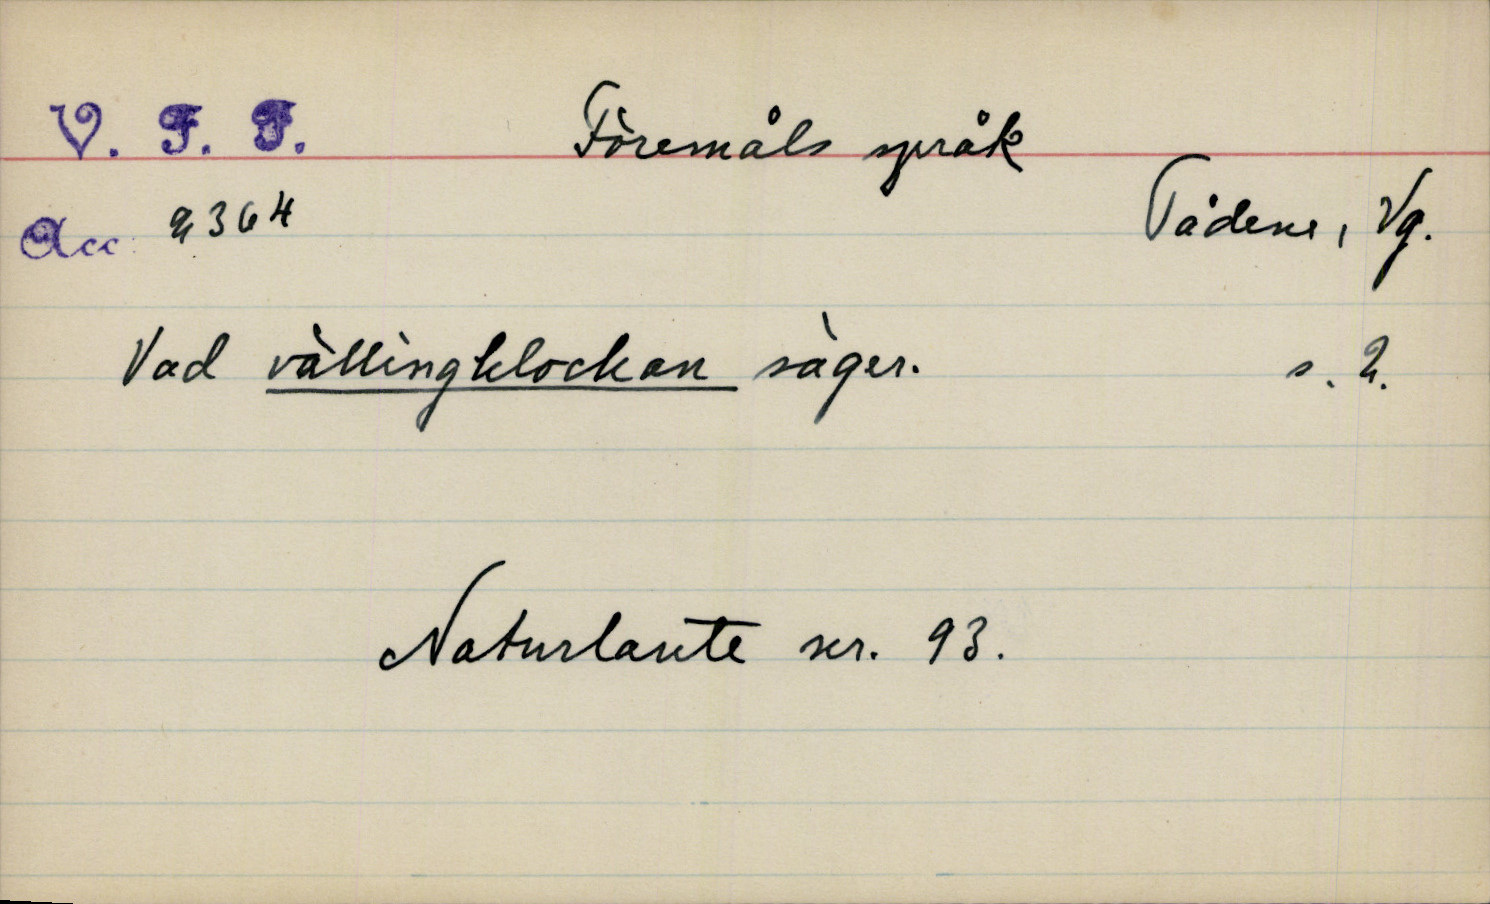 V. F. F. Föremåls språk
Acc. 2364 Tådene, Vg.
Vad vällingklockan säger. s. 2.
Naturlaute nr. 93.